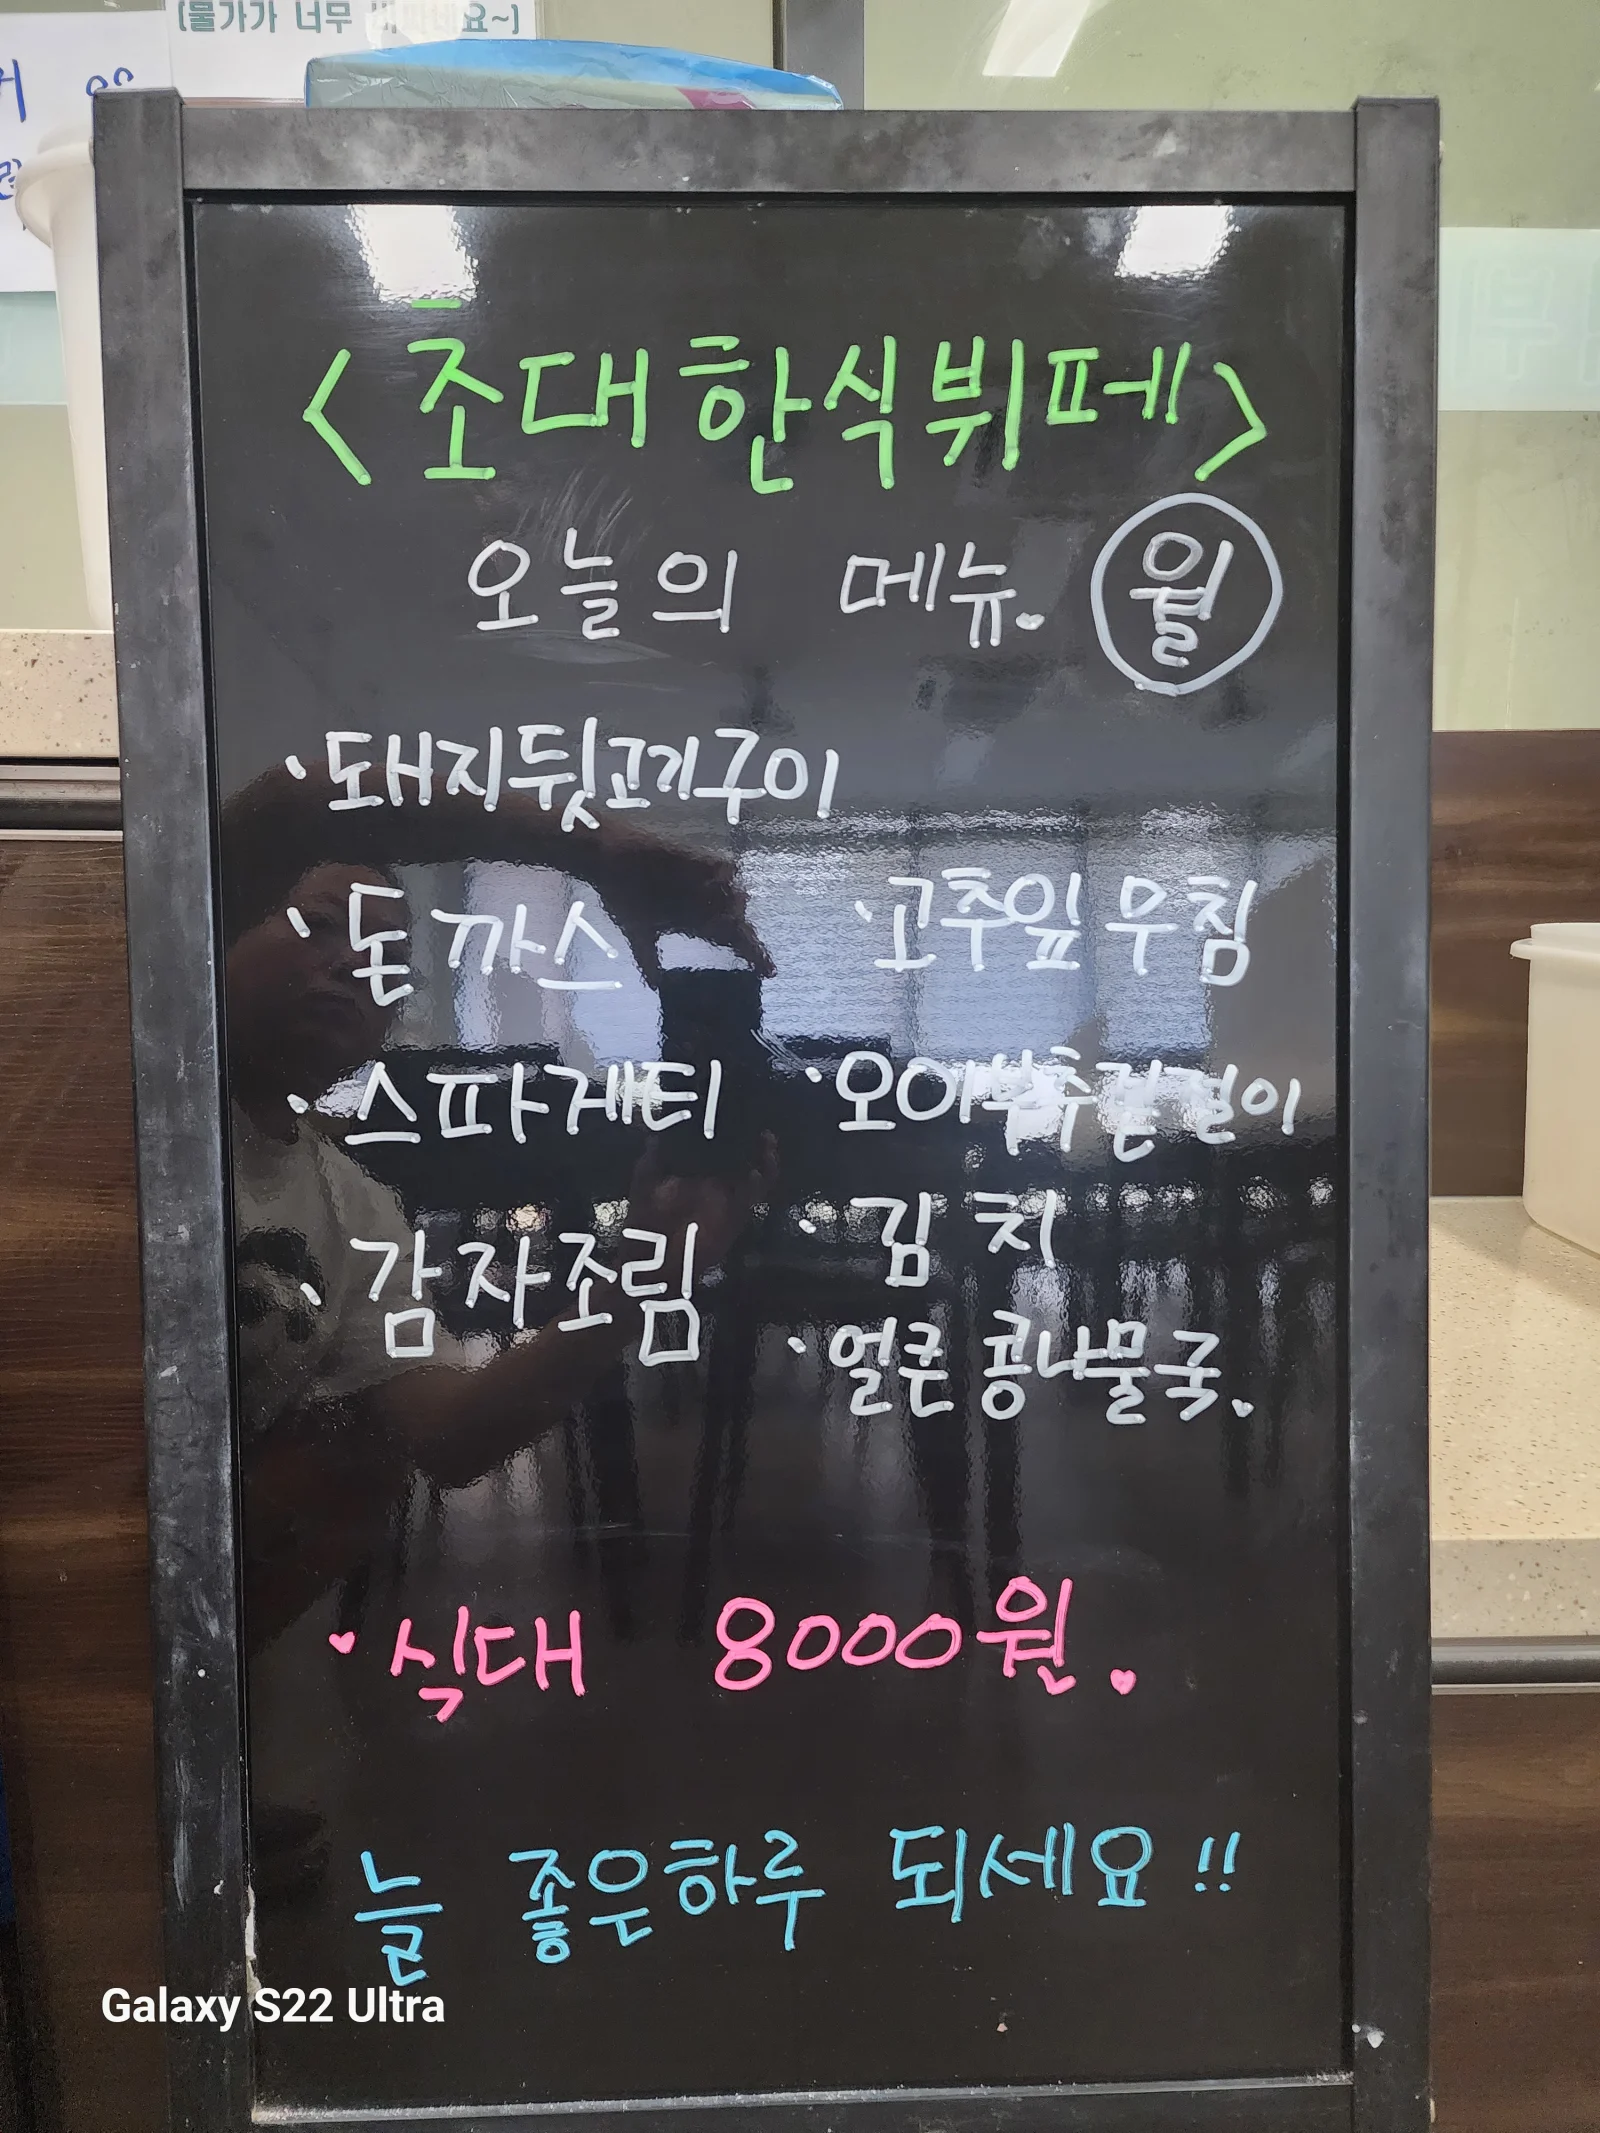 (물가가 너무
<초대한식뷔페>
오늘의 메뉴. 월
·돼지뒷고기구이
·돈까스 ·고추잎무침
·스파게티 ·오이부추겉절이
·감자조림 ·김치
·얼큰콩나물국.
·식대 8000원.
늘 좋은하루 되세요!!
Galaxy S22 Ultra